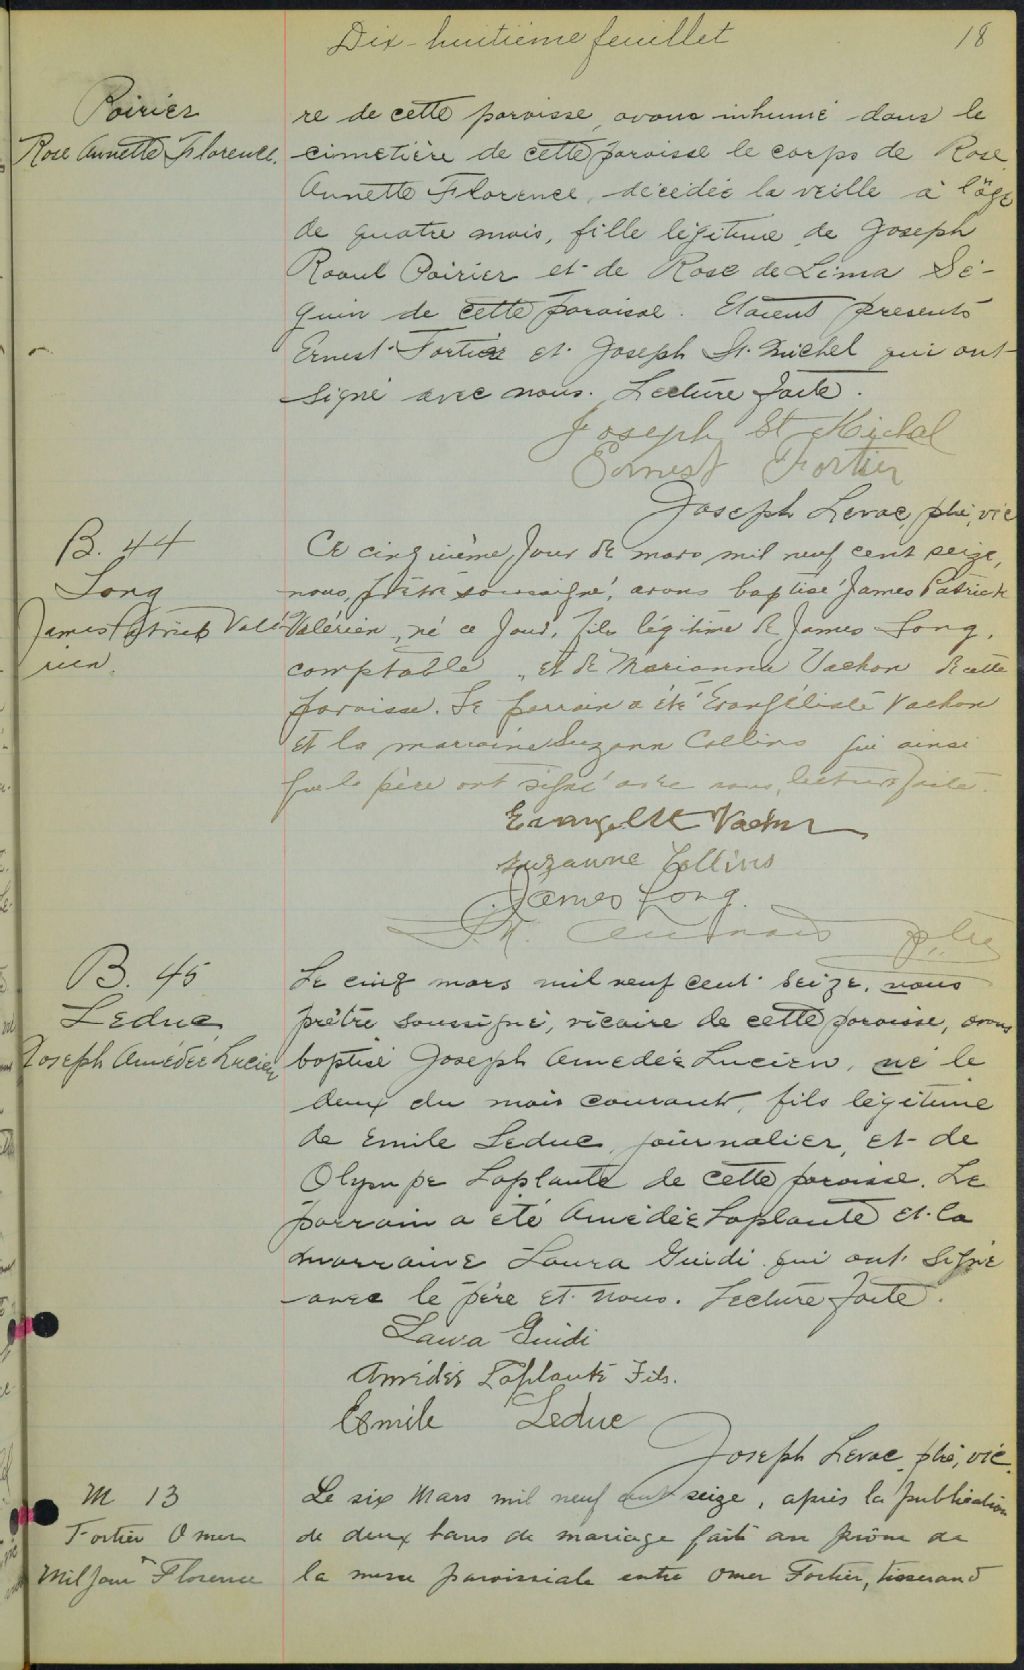 Dix-huitième feuillet 18
Poirier
Rose Annette Florence.
re de cette paroisse, avons inhumé dans le
cimetière de cette paroisse le corps de Rose
Annette Florence, décédée la veille à l'âge
de quatre mois, fille légitime de Joseph
Raoul Poirier et de Rose de Lima Sé-
guin de cette paroisse. Etaient présents
Ernest Fortier et Joseph St. Michel qui ont
signé avec nous. Lecture faite.
Joseph St Michel
Ernest Fortier
Joseph Levac, ptre, vic
B. 44
Long
James Patrick Valé
rien.
Ce cinquième jour de mars mil neuf cent seize,
nous, prêtre soussigné, avons baptisé James Patrick
Valérien, né ce jour, fils légitime de James Long,
comptable, et de Marianna Vachon de cette
paroisse. Le parrain a été Evangéliste Vachon
et la marraine Suzann Collins qui ainsi
que le père ont signé avec nous, lecture faite.
Evangeliste Vachon
Suzanne Collins
James Long.
ptre
B. 45
Leduc
Joseph Amédée Lucien
Le cinq mars mil neuf cent seize, nous
prêtre soussigné, vicaire de cette paroisse, avons
baptisé Joseph Amédée Lucien, né le
deux du mois courant, fils légitime
de Emile Leduc, journalier, et de
Olympe Laplante de cette paroisse. Le
parrain a été Amédée Laplante et la
marraine Laura Guidi qui ont signé
avec le père et nous. Lecture faite.
Laura Guidi
Amédée Laplante Fils.
Emile Leduc
Joseph Levac, ptre, vic.
M 13
Fortier Omer
Miljour Florence
Le six Mars mil neuf cent seize, après la publication
de deux bans de mariage faite au prône de
la messe paroissiale entre Omer Fortier, tisserand